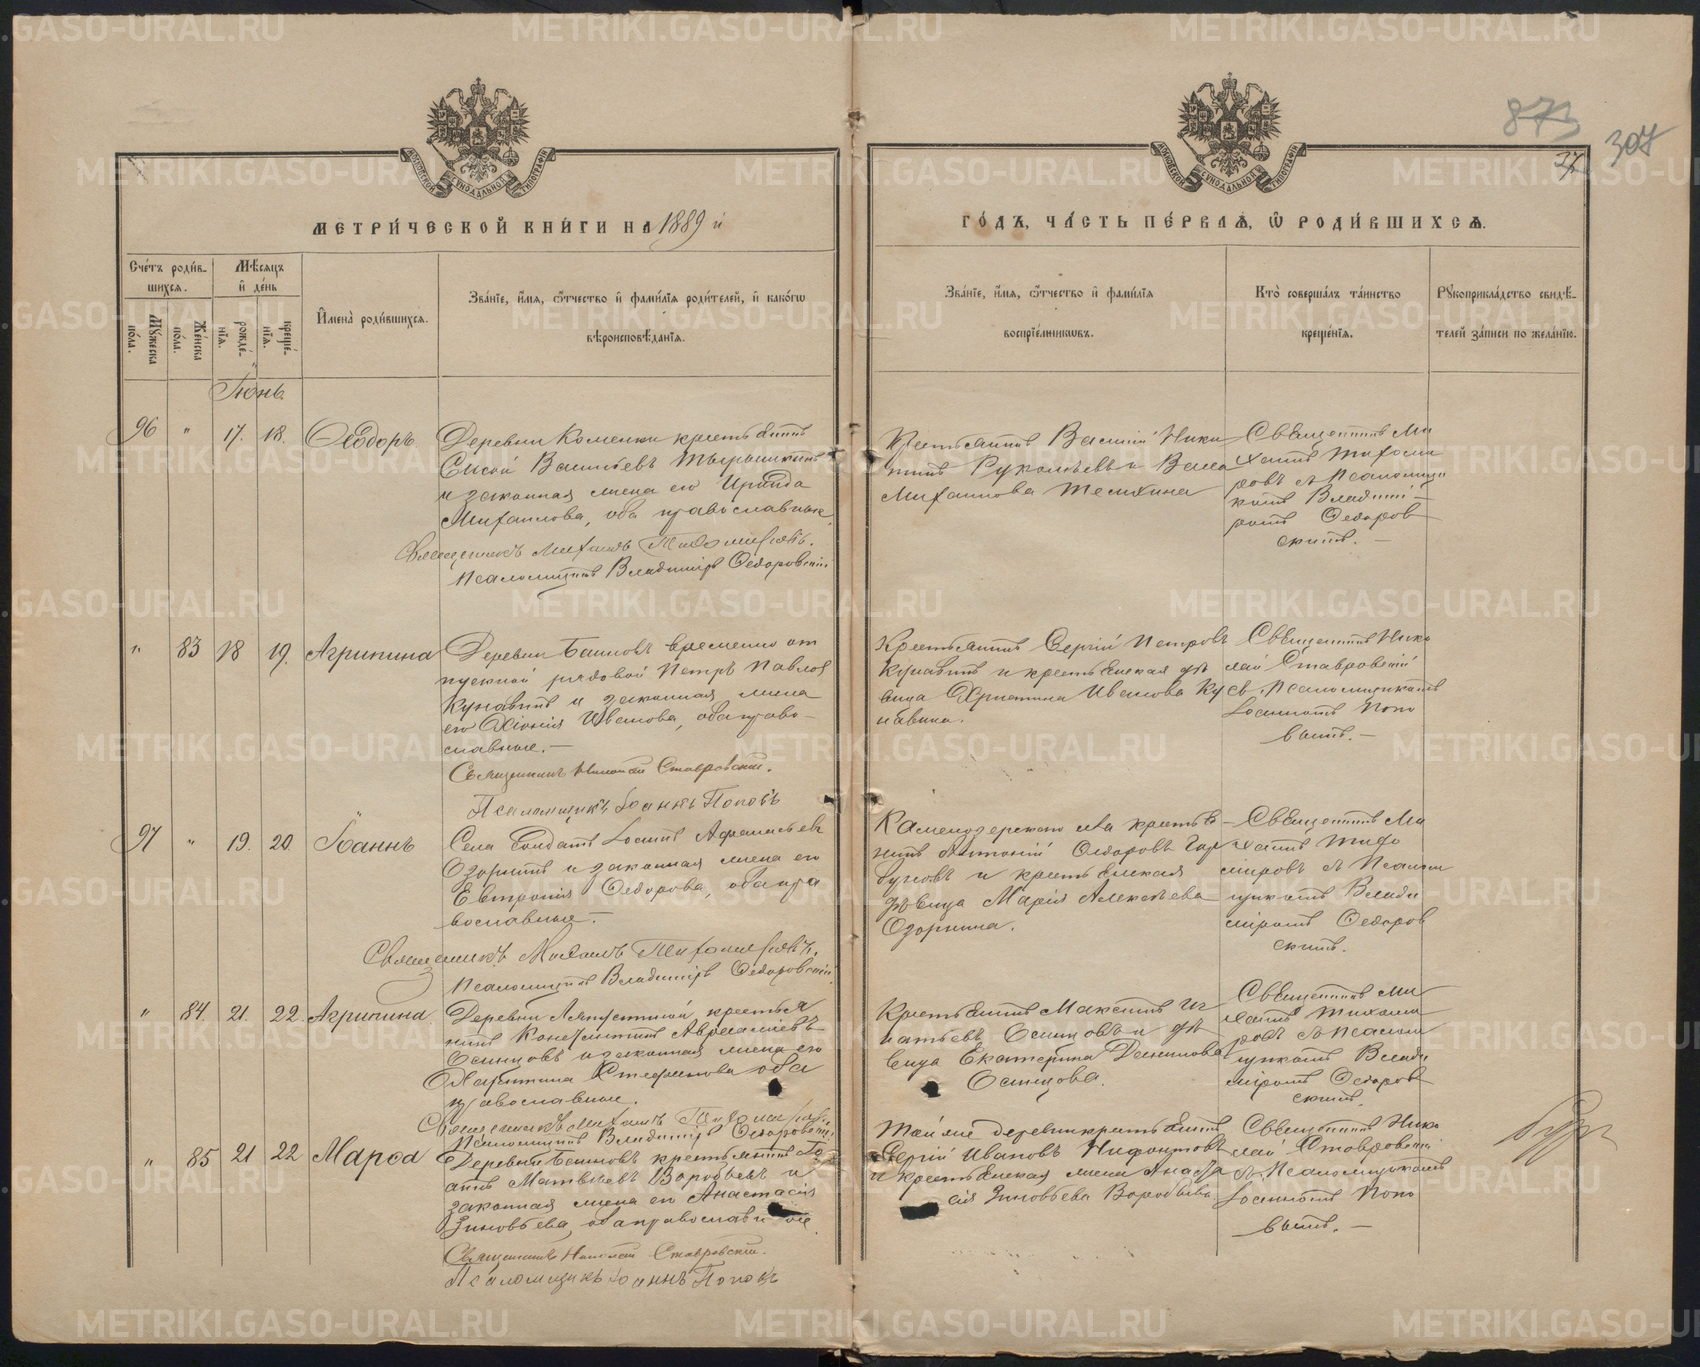 873
307
37
МЕТРИ́ЧЕСКОЙ КНИ́ГИ НА 1889 й
ГО́ДЪ, ЧА́СТЬ ПЕ́РВАѦ, Ѽ РОДИ́ВШИХСѦ.
Сче́тъ роди́в-
шихсѧ.
Мѣ́сѧцъ
и҆ де́нь
Мꙋ́жеска
по́ла.
Же́нска
по́ла.
рожде́-
нїѧ.
креще́-
нїѧ.
И҆мена̀ роди́вшихсѧ.
Зва́нїе, и҆́мѧ, ѻ҆́тчество и҆ фами́лїѧ роди́телей, и҆ како́гѡ
вѣроисповѣ́данїѧ.
Зва́нїе, и҆́мѧ, ѻ҆́тчество и҆ фами́лїѧ
воспрїе́мникѡвъ.
Кто̀ соверша́лъ та́инство
креще́нїѧ.
Рꙋкоприкла́дство свидѣ́-
телей за́писи по жела́нїю.
Іюнь
96 " 17. 18. Ѳеодоръ
Деревни Коменки крестьянинъ
Сысой Васильевъ
и законная жена его Ираида
Михаилова, оба православные
Священникъ Михаилъ Тихомировъ.
Псаломщикъ Владиміръ Ѳедоровскій
Крестьянинъ Василій Ники
тинъ Руколѣевъ и Васса
Михаилова Телихина
Священникъ Ми
хаилъ Тихоми
ровъ съ Псаломщи
комъ Владимі-
ромъ Ѳедоров
скимъ. —
" 83 18 19. Агрипина
Деревни Баиновъ временно от
пускной рядовой Петръ Павлов
Кунавинъ и законная жена
его Хіонія Иванова, оба право-
славные. —
Священникъ Николай Ставровскій.
Псаломщикъ Іоаннъ Поповъ
Крестьянинъ Сергій Петровъ
Кунавинъ и крестьянская дѣ
вица Христина Иванова Ку
навина.
Священникъ Нико
лай Ставровскій
съ Псаломщикомъ
Іоанномъ Попо
вымъ. —
97 " 19. 20. Іоаннъ
Села Солдатъ Іоаннъ Афанасьевъ
Озорнинъ и законная жена его
Евтропія Ѳедорова, оба пра
вославные. —
Священникъ Михаилъ Тихомировъ.
Псаломщикъ Владиміръ Ѳедоровскій
Каменоозерскаго села крестья-
нинъ Антоній Ѳедоровъ Гор
буновъ и крестьянская
дѣвица Марія Алексѣева
Озорнина.
Священникъ Ми
хаилъ Тихо
мировъ съ Псалом
щикомъ Влади
міромъ Ѳедоров
скимъ.
" 84. 21. 22. Агрипина.
Деревни Ляпустиной крестья
нинъ Константинъ Аврамовъ
Осинцовъ и законная жена его
Харитина Стефанова оба
православные.
Священникъ Михаилъ Тихомировъ
Псаломщикъ Владиміръ Ѳедоровскій
Крестьянинъ Максимъ Иг
натьевъ Осинцовъ и дѣ
вица Екатерина Данилова
Осинцова.
Священникъ Ми
хаилъ Тихоми
ровъ съ Псалом
щикомъ Влади
міромъ Ѳедоров
скимъ.
" 85 21 22 Марѳа
Деревни Баиновъ крестьянинъ Іо
аннъ Матвѣевъ Воробьевъ и
законная жена его Анастасія
Зиновьева, оба православные.
Священникъ Николай Ставровскій.
Псаломщикъ Іоаннъ Поповъ
Той же деревни крестьянинъ
Сергій Ивановъ Нифонтовъ
и крестьянская жена Анаста
сія Зиновьева Воробьева
Священникъ Нико
лай Ставровскій
съ Псаломщикомъ
Іоанномъ Попо
вымъ. —
METRIKI.GASO-URAL.RU